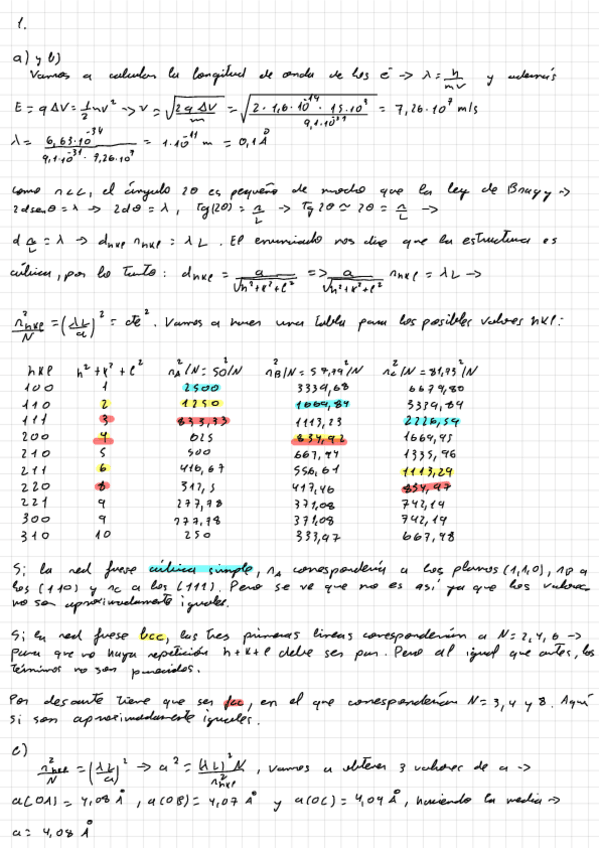 1.
a) y b)
Vamos a calcular la longitud de onda de los e⁻ → λ = h/mv y además
E = q ΔV = 1/2 mv² → v = √(2q ΔV/m) = √(2 · 1,6·10⁻¹⁹ · 15·10³ / 9,1·10⁻³¹) = 7,26·10⁷ m/s
λ = 6,63·10⁻³⁴ / 9,1·10⁻³¹ · 7,26·10⁷ = 1·10⁻¹¹ m = 0,1 Å
como r<<L, el ángulo 2θ es pequeño de modo que la ley de Bragg →
2dsenθ = λ → 2dθ = λ, Tg(2θ) = r/L → Tg 2θ ≃ 2θ = r/L →
d r/L = λ → dhkl rhkl = λL. El enunciado nos dice que la estructura es
cúbica, por lo tanto: dhkl = a/√(h²+k²+l²) => a/√(h²+k²+l²) rhkl = λL →
r²hkl/N = (λL/a)² = cte². Vamos a hacer una tabla para los posibles valores hkl:
hkl h²+k²+l² r²A/N = 50²/N r²B/N = 57,79²/N r²C/N = 81,73²/N
100 1 2500 3339,68 6679,80
110 2 1250 1669,84 3339,89
111 3 833,33 1113,23 2226,59
200 4 625 834,92 1669,95
210 5 500 667,94 1335,96
211 6 416,67 556,61 1113,29
220 8 312,5 417,46 834,97
221 9 277,78 371,08 742,19
300 9 277,78 371,08 742,19
310 10 250 333,97 667,98
Si la red fuese cúbica simple, rA correspondería a los planos (1,1,0), rB a
los (110) y rC a los (111). Pero se ve que no es así ya que los valores
no son aproximadamente iguales.
Si la red fuese bcc, las tres primeras lineas corresponderían a N=2,4,6 →
para que no haya repetición h+k+l debe ser par. Pero al igual que antes, los
términos no son parecidos.
Por descarte tiene que ser fcc, en el que corresponderían N=3,4 y 8. Aquí
si son aproximadamente iguales.
c)
r²hkl/N = (λL/a)² → a² = (λL)²N/r²hkl, vamos a obtener 3 valores de a →
a(OA) = 4,08 Å, a(OB) = 4,07 Å y a(OC) = 4,04 Å, haciendo la media →
a = 4,08 Å